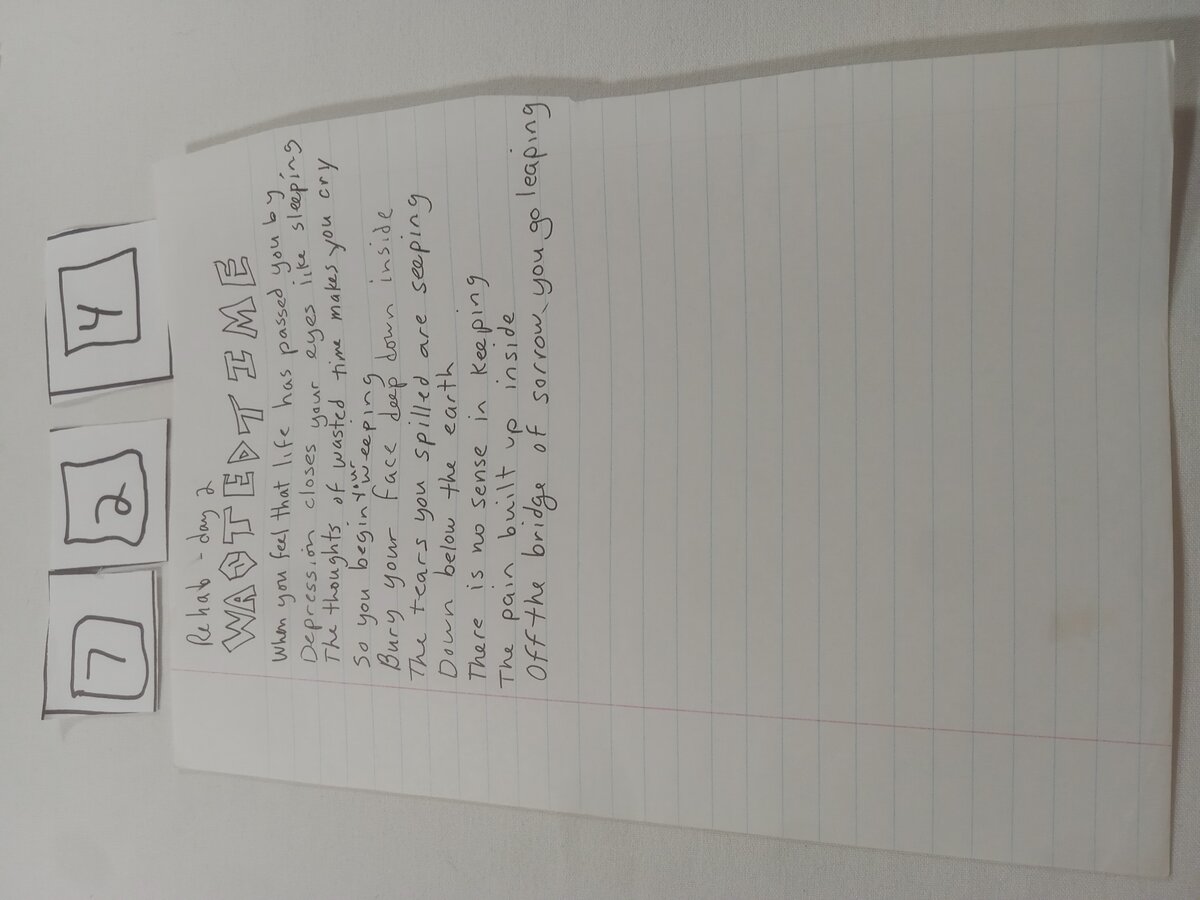 7 2 4
Rehab - day 2
WASTED TIME
When you feel that life has passed you by
Depression closes your eyes like sleeping
The thoughts of wasted time makes you cry
So you begin your weeping
Bury your face deep down inside
The tears you spilled are seeping
Down below the earth
There is no sense in keeping
The pain built up inside
Off the bridge of sorrow, you go leaping